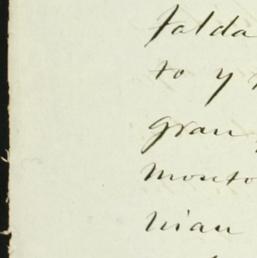 falda
to y
gran
monto
nian